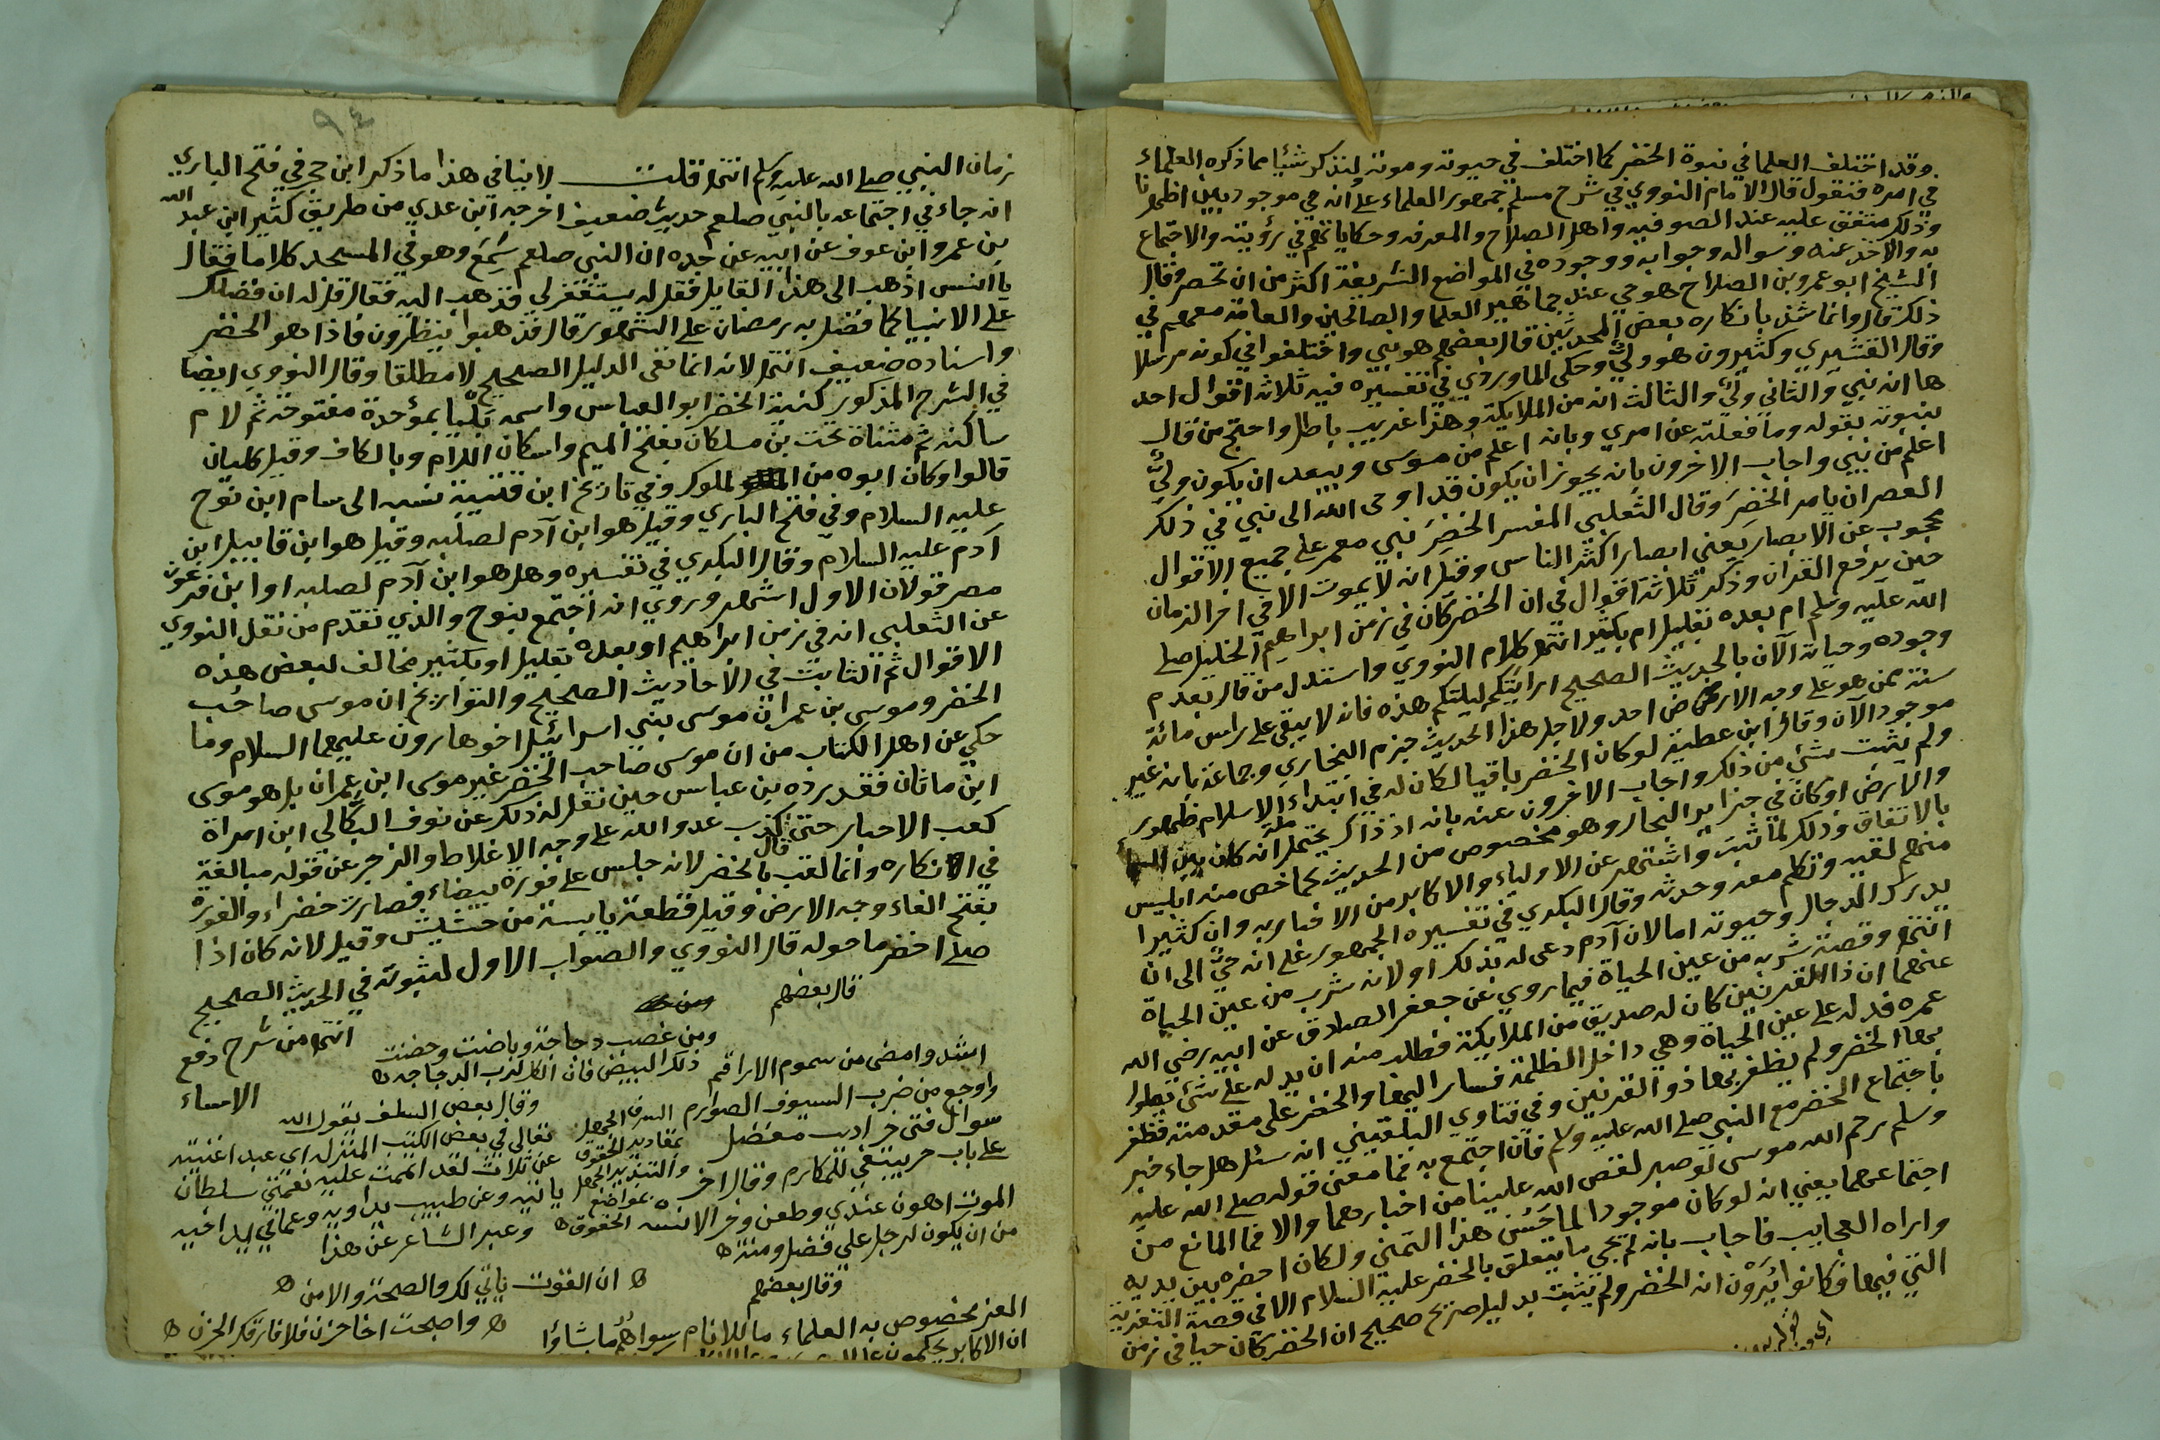 وقد اختلف العلما في نبوة الخضر كما اختلف في حيوته وموته لنذكر شيئا مما ذكره العلماء
في امره فنقول قال الامام النووي في شرح مسلم جمهور العلماء على انه حي موجود بين اظهرنا
وذلك متفق عليه عند الصوفيه واهل الصلاح والمعرفه وحكاياتهم في رؤيته والاجتماع
به والاخذ عنه وسواله وجوابه ووجوده في المواضع الشريفة اكثر من ان تحصر وقال
الشيخ ابو عمرو بن الصلاح هو حي عند جماهير العلما والصالحين والعامة معهم في
ذلك قال وانما شذ بانكاره بعض المحدثين قال بعضهم هو نبي واختلفوا في كونه مرسلا
وقال القشيري وكثيرون هو وليّ وحكى الماوردي في تفسيره فيه ثلاثه اقوال احد
ها انه نبي والثاني وليّ والثالث انه من الملايكة وهذا غريب باطل واحتج من قال
بنبوته بقوله وما فعلته عن امري وبانه اعلم من موسى ويبعد ان يكون وليّ
اعلم من نبي واجاب الاخرون بانه يجوز ان يكون قد اوحى الله الى نبي في ذلك
العصر ان يامر الخضر وقال الثعلبي المفسر الخضر نبي معمر على جميع الاقوال
محجوب عن الابصار يعني ابصار اكثر الناس وقيل انه لا يموت الا في اخر الزمان
حين يرفع القران وذكر ثلاثة اقوال في ان الخضر كان في زمن ابراهيم الخليل صلى
الله عليه وسلم ام بعده بقليل ام بكثير انتهى كلام النووي واستدل من قال بعدم
وجوده وحياته الآن بالحديث الصحيح ارايتكم ليلتكم هذه فانه لا يبقى على راس مائة
سنة ممن هو على وجه الارض احد ولاجل هذا الحديث جزم البخاري وجماعة بانه غير
موجود الآن وقال ابن عطية لو كان الخضر باقيا لكان له في ابتداء الاسلام ظهور
ولم يثبت شئ من ذلك واجاب الاخرون عنه بانه اذ ذاك يحتمل انه كان بين السما
والارض او كان في جزاير البحار وهو مخصوص من الحديث كما خص منه ابليس
بالاتفاق وذلك لما ثبت واشتهر عن الاولياء والاكابر من الاخبار به وان كثيرا
منهم لقيه وتكلم معه وحدثه وقال البكري في تفسيره الجمهور على انه حيّ الى ان
يدرك الدجال وحيوته اما لان آدم دعى له بذلك او لانه شرب من عين الحياة
انتهى وقصة شربه من عين الحياة فيما روي عن جعفر الصادق عن ابيه رضي الله
عنهما ان ذا القرنين كان له صديق من الملايكة فطلب منه ان يدله على شئ يطول
عمره فدله على عين الحياة وهي داخل الظلمة فسار اليها والخضر على مقدمته فظفر
بها الخضر ولم يظفر بها ذو القرنين وفي فتاوي البلقيني انه سئل هل جاء خبر
باجتماع الخضر مع النبي صلى الله عليه ولم فان اجتمع به فما معنى قوله صلى الله عليه
وسلم رحم الله موسى لو صبر لقص الله علينا من اخبارهما والا فما المانع من
اجتماعهما يعني انه لو كان موجودا لما حَسُن هذا التمني ولكان احضره بين يديه
واراه العجايب فاجاب بانه لم يجي ما يتعلق بالخضر عليه السلام الا في قصة التعزية
التي فيها فكانوا يُرَوْن انه الخضر ولم يثبت بدليل صريح صحيح ان الخضر كان حيا في زمن
٩٤
زمان النبي صلى الله عليه وسلم انتهى قلت لا ينافي هذا ما ذكر ابن حجر في فتح الباري
انه جاء في اجتماعه بالنبي صلعم حديث ضعيف اخرجه ابن عدي من طريق كثير ابن عبد الله
بن عمرو ابن عوف عن ابيه عن جده ان النبي صلعم سَمِعَ وهو في المسجد كلاما فقال
يا انس اذهب الى هذا القايل فقل له يستغفر لي فذهب اليه فقال قل له ان فضلك
على الانبيا كما فضل به رمضان على الشهور قال فذهبوا ينظرون فاذا هو الخضر
واسناده ضعيف انتهى لانه انما نفى الدليل الصحيح لا مطلقا وقال النووي ايضا
في الشرح المذكور كنية الخضر ابو العباس واسمه بَلْيا بموحدة مفتوحة ثم لام
ساكنه ثم مثناة تحت بن ملكان بفتح الميم واسكان اللام وبالكاف وقيل كلمان
قالوا وكان ابوه من الملوك وفي تاريخ ابن قتيبة نسبه الى سام ابن نوح
عليه السلام وفي فتح الباري وقيل هو ابن آدم لصلبه وقيل هو ابن قابيل ابن
آدم عليه السلام وقال البكري في تفسيره وهل هو ابن آدم لصلبه او ابن فرعون
مصر قولان الاول اشهر وروي انه اجتمع بنوح والذي تقدم من نقل النووي
عن الثعلبي انه في زمن ابراهيم او بعده بقليل او بكثير مخالف لبعض هذه
الاقوال ثم الثابت في الاحاديث الصحيح والتواريخ ان موسى صاحب
الخضر وموسى بن عمران موسى بني اسرائيل اخو هارون عليهما السلام وما
حكي عن اهل الكتاب من ان موسى صاحب الخضر غير موسى ابن عمران بل هو موسى
ابن ماثان فقد رده بن عباس حين نقل له ذلك عن نوف البكالي ابن امراة
كعب الاحبار حتى قال كذب عدو الله على وجه الاغلاظ والزجر عن قوله مبالغة
في انكاره وانما لقب بالخضر لانه جلس على فورة بيضاء فصارت خضراء والفورة
بفتح الفاء وجه الارض وقيل قطعة يابسة من حشيش وقيل لانه كان اذا
صلى اخضر ما حوله قال النووي والصواب الاول لثبوته في الحديث الصحيح
انتهى من شرح دفع
الاساء
قال بعضهم
اشد وامضى من سموم الاراقم
واوجع من ضرب السيوف الصوارم
سوال فتى حر اديب مفضل
على باب حر يبتغي للمكارم وقال اخر
الموت اهون عندي وطعن وخز الاسنه
من ان يكون لرجل علي فضل ومنة
وقال بعضهم
العز مخصوص به العلماء ما للانام سواهم ما شاؤا
ومن غصب دجاجة وباضت وحضنت
ذلك البيض فان الكل لرب الدجاجه
وقال بعض السلف يقول الله
تعالى في بعض الكتب المنزله اي عبد اغنيته
عن ثلاث لقد اتممت عليه نعمتي سلطان
ياتيه وعن طبيب يداويه وعما في يد اخيه
وعبر الشاعر عن هذا
ان القوت ياتي لك والصحة والامن
واصبحت اخا حزن فلا فارقك الحزن
السرف الجهل
بمقادير الحقوق
والتبذير الجهل
بمواضع
الحقوق